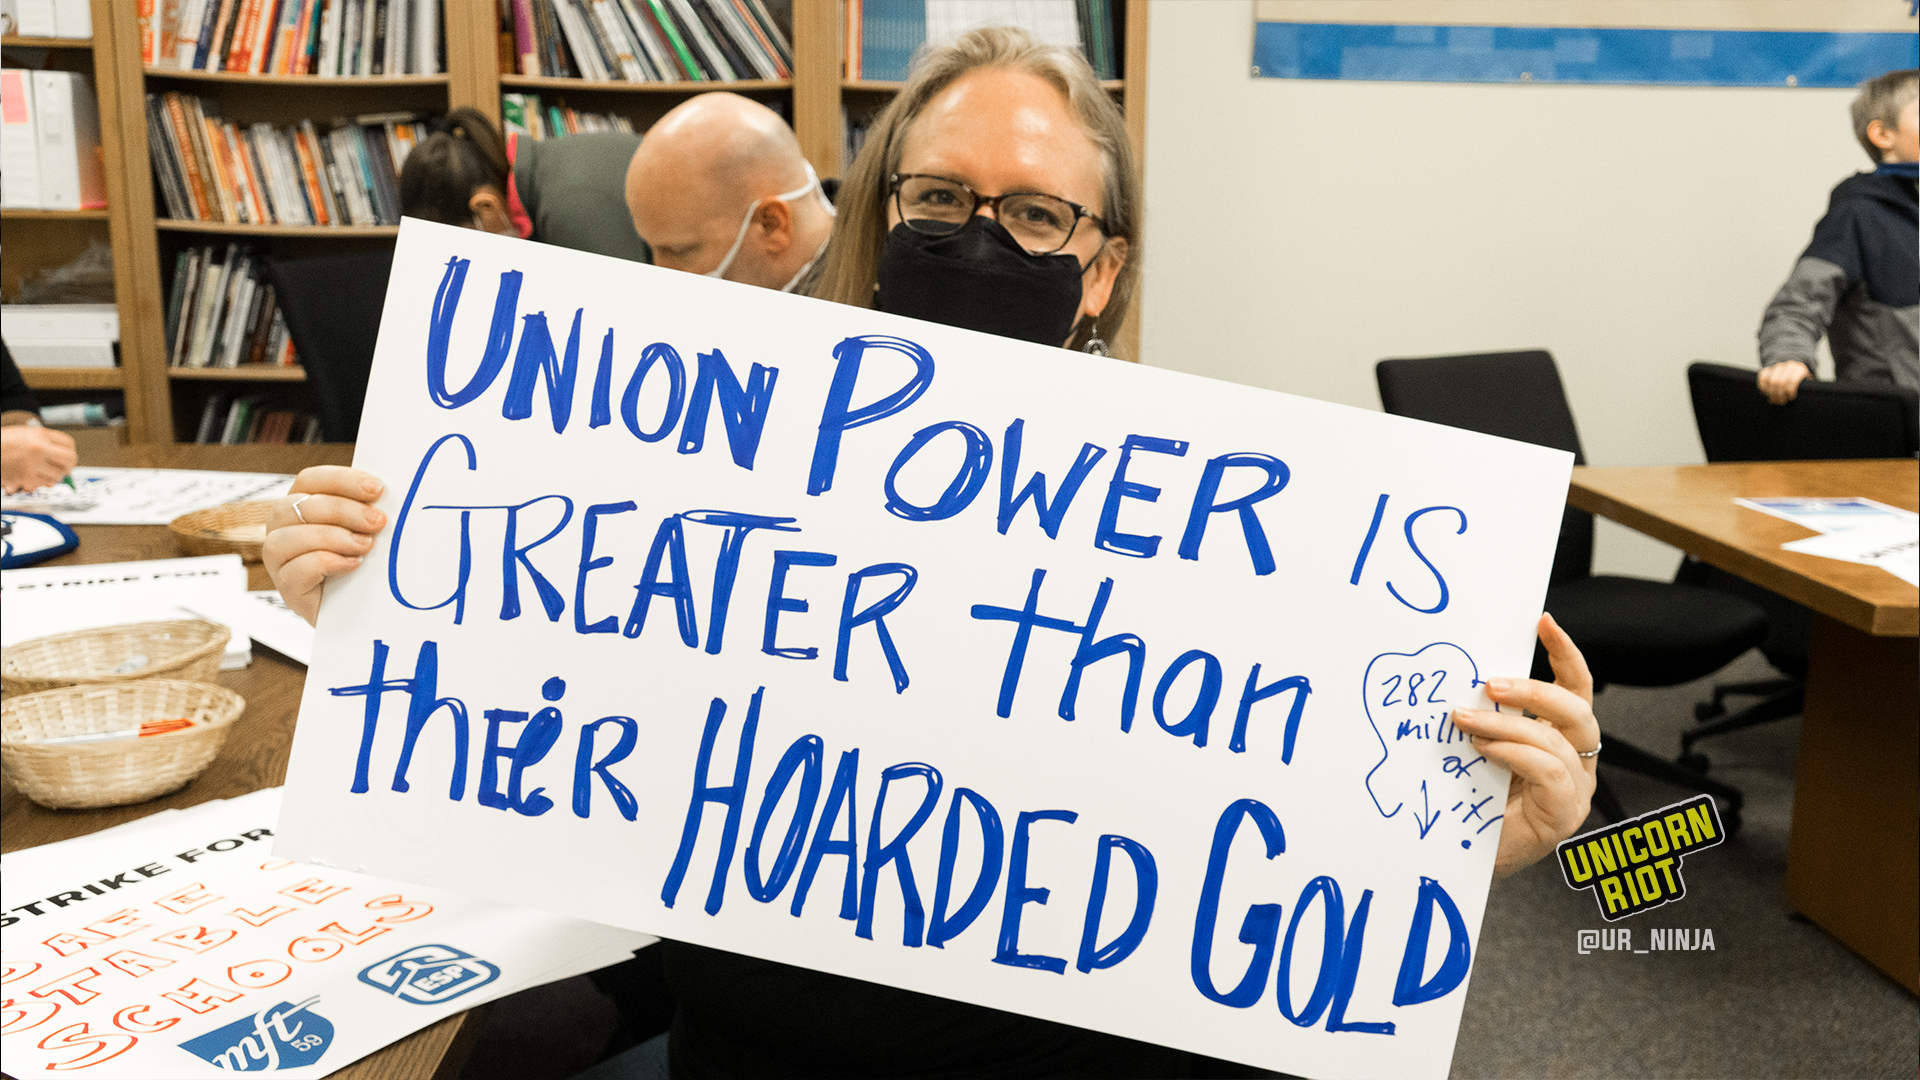 UNION POWER IS
GREATER than
thEiR HOARDED GOLD
282
of
STRIKE FOR
STRIKE FOR
SAFE
STABLE
SCHOOLS
mft
59
ESP
UNICORN
RIOT
@UR_NINJA